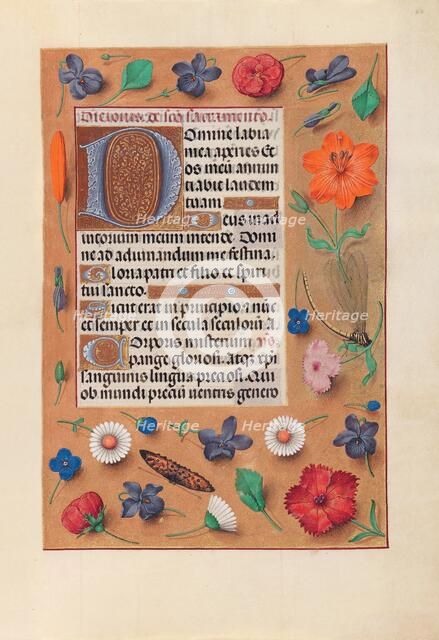 Die iouis de scō sacramento.
Domine labia
mea aperies Et
os meū annun
tiabit laudem
tuam
Deus in ad
iutorium meum intende Domi
ne ad adiuuandum me festina
Gloria patri et filio et spiri
tui sancto.
Sicut erat in principio et nūc
et semper et in secula seculorū a
Corporis misterium
pange gloriosi Atqz
sanguinis lingua preciosi. Qui
ob mundi precium uentris genero
Heritage
Heritage
Heritage
Heritage
Heritage
Heritage
Heritage
Heritage